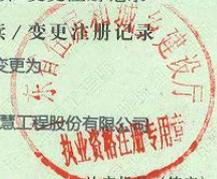 续/变更注册记录
变更为
慧工程股份有限公司
东省住房和城乡建设厅
执业资格注册专用章